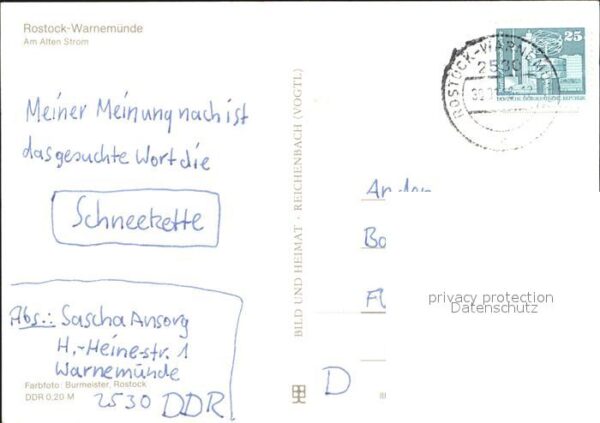 Rostock-Warnemünde
Am Alten Strom
25
ROSTOCK-WARNEMÜ
2530
Meiner Meinung nach ist
das gesuchte Wort die
Schneekette
BILD UND HEIMAT · REICHENBACH (VOGTL)
An den
Bo
Fl
privacy protection
Datenschutz
Abs.: Sascha Ansorg
H.-Heine-str. 1
Warnemünde
2530 DDR
Farbfoto: Burmeister, Rostock
DDR 0,20 M
D